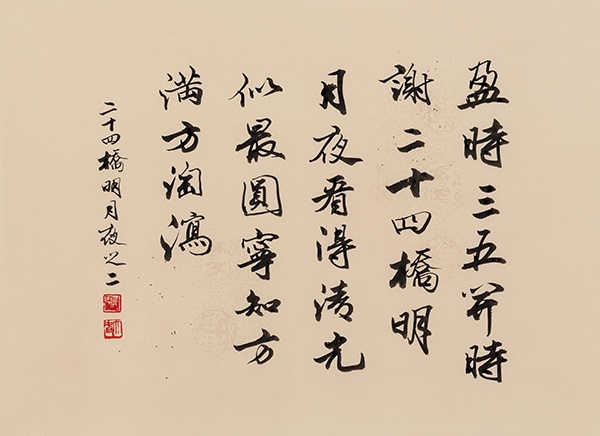 盈時三五開時
謝二十四橋明
月夜看得清光
似最圓寧知方
滿方淘瀉
二十四橋明月夜之二